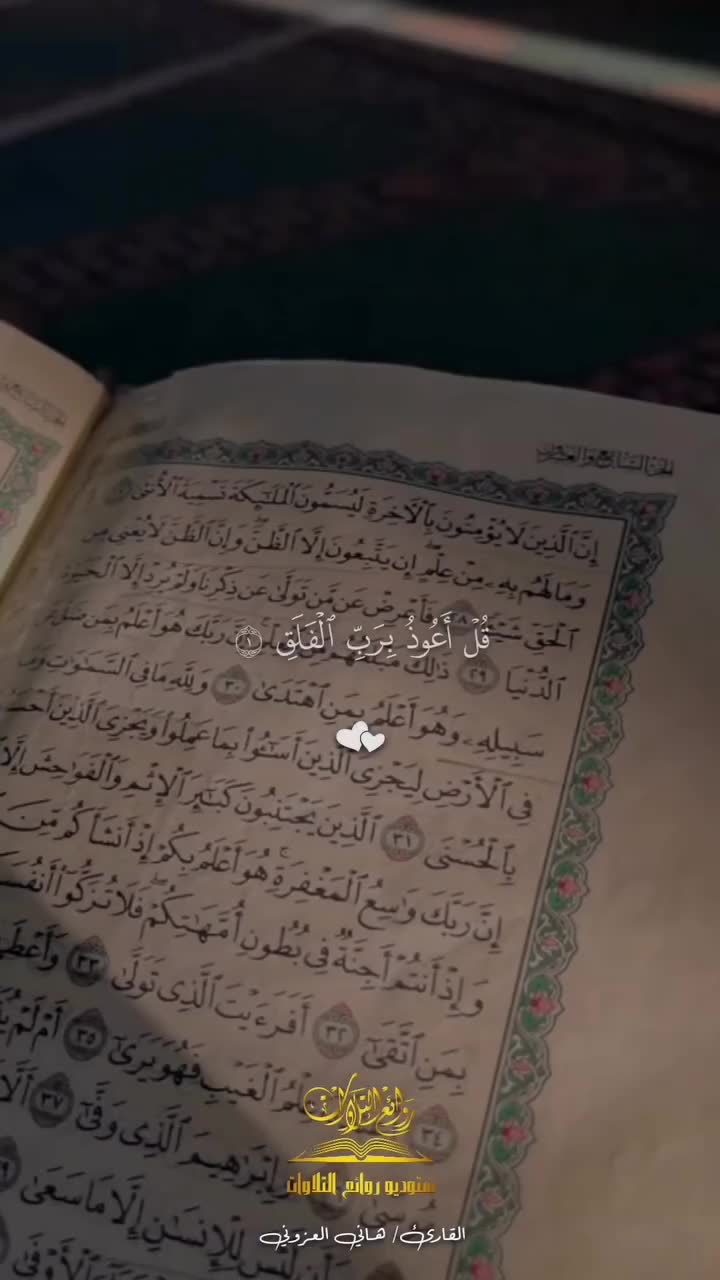 الجزء السابع والعشرون
إِنَّ ٱلَّذِينَ لَا يُؤْمِنُونَ بِٱلْأَخِرَةِ لَيُسَمُّونَ ٱلْمَلَٰٓئِكَةَ تَسْمِيَةَ ٱلْأُنثَىٰ
وَمَا لَهُم بِهِۦ مِنْ عِلْمٍ إِن يَتَّبِعُونَ إِلَّا ٱلظَّنَّ وَإِنَّ ٱلظَّنَّ لَا يُغْنِى مِنَ
ٱلْحَقِّ شَيْـًٔا ٢٨ فَأَعْرِضْ عَن مَّن تَوَلَّىٰ عَن ذِكْرِنَا وَلَمْ يُرِدْ إِلَّا ٱلْحَيَوٰةَ
قُلْ أَعُوذُ بِرَبِّ ٱلْفَلَقِ ١
ٱلدُّنْيَا ٢٩ ذَٰلِكَ مَبْلَغُهُم رَبَّكَ هُوَ أَعْلَمُ بِمَن ضَلَّ عَن
سَبِيلِهِۦ وَهُوَ أَعْلَمُ بِمَنِ ٱهْتَدَىٰ ٣٠ وَلِلَّهِ مَا فِى ٱلسَّمَٰوَٰتِ وَمَا
فِى ٱلْأَرْضِ لِيَجْزِىَ ٱلَّذِينَ أَسَٰٓـُٔوا۟ بِمَا عَمِلُوا۟ وَيَجْزِىَ ٱلَّذِينَ
بِٱلْحُسْنَى ٣١ ٱلَّذِينَ يَجْتَنِبُونَ كَبَٰٓئِرَ ٱلْإِثْمِ وَٱلْفَوَٰحِشَ إِلَّا
إِنَّ رَبَّكَ وَٰسِعُ ٱلْمَغْفِرَةِ هُوَ أَعْلَمُ بِكُمْ إِذْ أَنشَأَكُم مِّنَ
وَإِذْ أَنتُمْ أَجِنَّةٌ فِى بُطُونِ أُمَّهَٰتِكُمْ فَلَا تُزَكُّوٓا۟
بِمَنِ ٱتَّقَىٰٓ ٣٢ أَفَرَءَيْتَ ٱلَّذِى تَوَلَّىٰ ٣٣
٣٤ ٱلْغَيْبِ فَهُوَ يَرَىٰٓ ٣٥ أَمْ لَمْ
وَإِبْرَٰهِيمَ ٱلَّذِى وَفَّىٰٓ ٣٧
لِلْإِنسَٰنِ إِلَّا مَا سَعَىٰ
روائع التلاوات
ستوديو روائع التلاوات
القارئ/ هاني العزوني